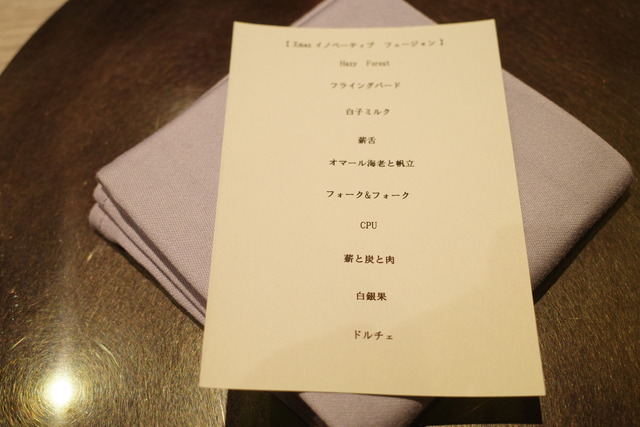 【 Xmas イノベーティブ　フュージョン 】
Hazy　Forest
フライングバード
白子ミルク
薪舌
オマール海老と帆立
フォーク&フォーク
CPU
薪と炭と肉
白銀果
ドルチェ